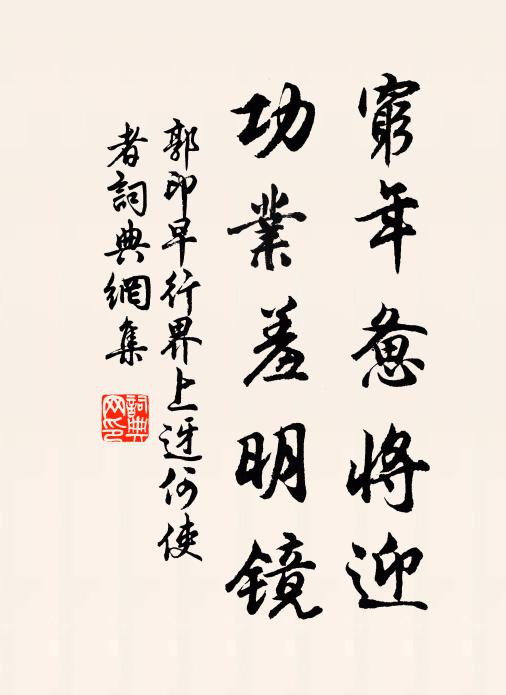 窮年惫將迎
功業羞明鏡
郭印早行界上迓何使
者詞典網集
詞典
网印